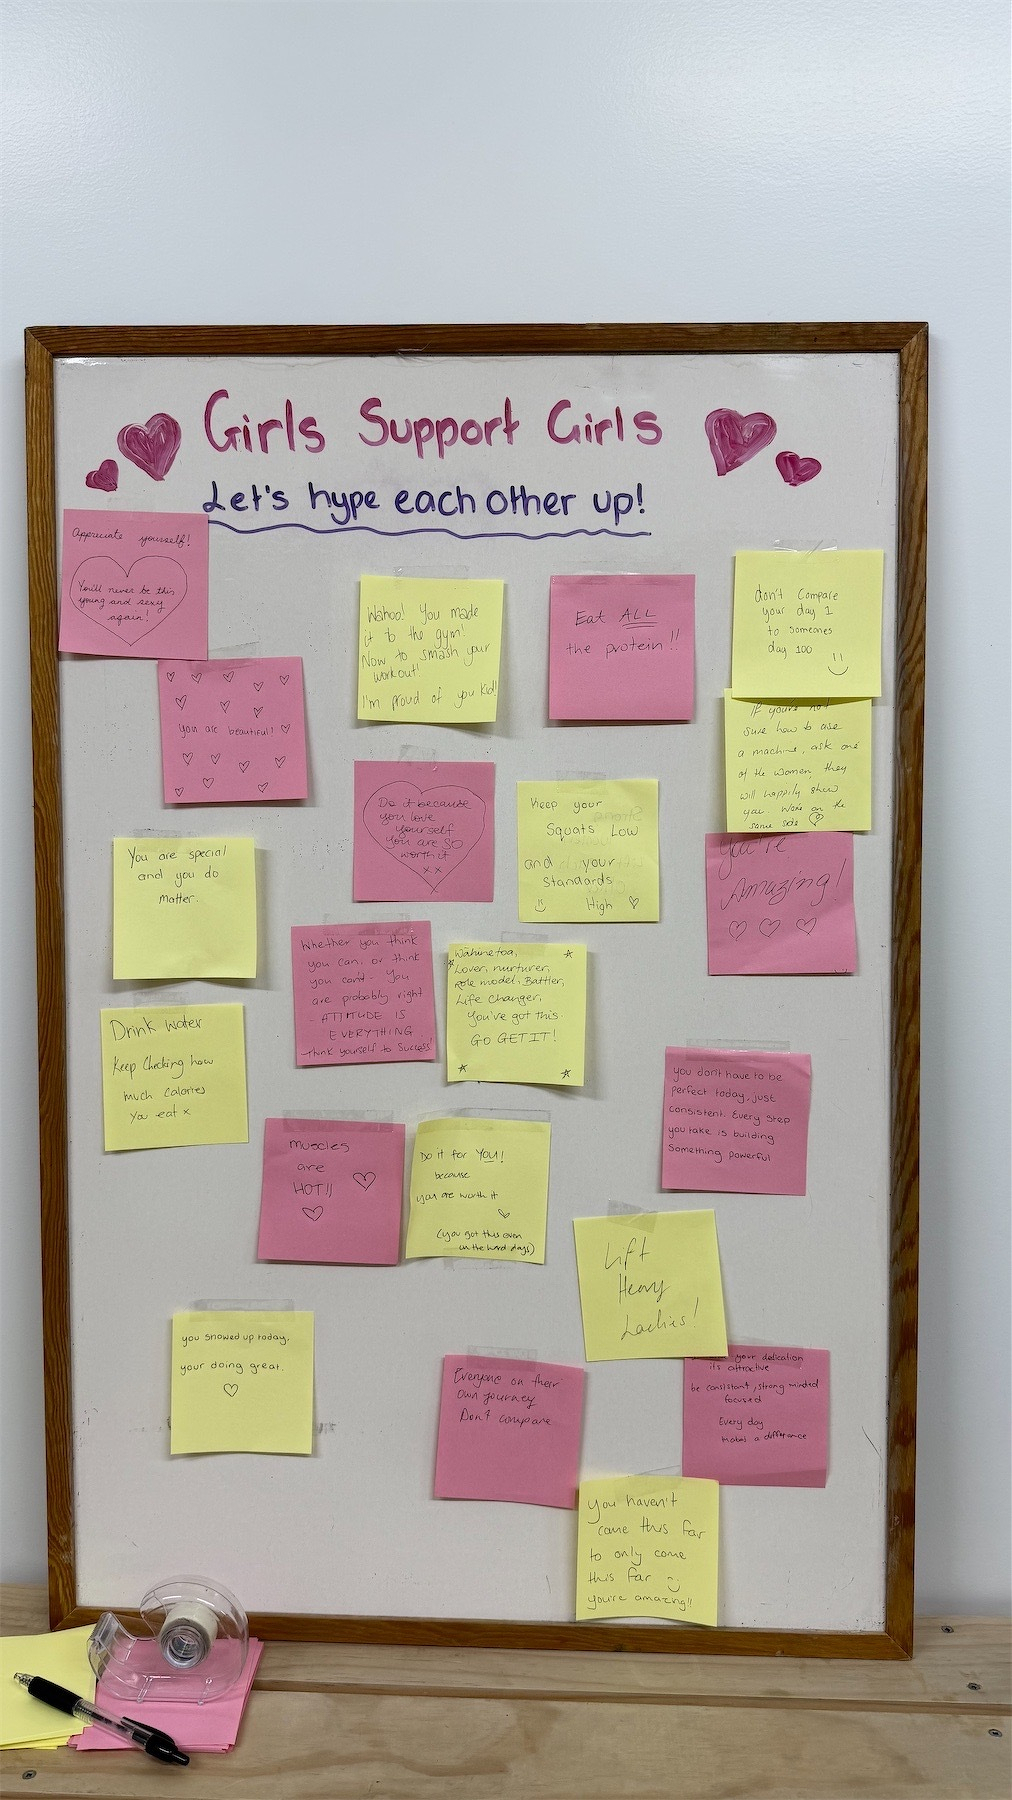 Girls Support Girls
Let's hype each other up!
Appreciate yourself!
You'll never be this
young and sexy
again!
Wahoo! You made
it to the gym!
Now to smash your
workout!
I'm proud of you kid!
Eat ALL
the protein!!
don't compare
your day 1
to someones
day 100
you are beautiful!
If you're not
sure how to use
a machine, ask one
of the women, they
will happily show
you. We're on the
same side
Do it because
you love
yourself
You are SO
worth it
xx
Keep your
Squats Low
and your
Standards
High
You're
Amazing!
You are special
and you do
matter.
Whether you think
you can, or think
you can't - You
are probably right
- ATTITUDE IS
EVERYTHING
Think yourself to Success!
Wahine toa,
Lover, nurturer,
Role model, Battler,
Life Changer,
You've got this.
GO GET IT!
Drink water
Keep checking how
much calories
you eat x
you don't have to be
perfect today, just
consistent. Every step
you take is building
something powerful
muscles
are
HOT!!
Do it for YOU!
because
you are worth it
(you got this even
on the hard days)
Lift
Heavy
Ladies!
you showed up today,
your doing great.
Everyone on their
own journey
Don't compare
your dedication
its attractive
be consistent, strong minded
focused
Every day
makes a difference
You haven't
come this far
to only come
this far
you're amazing!!